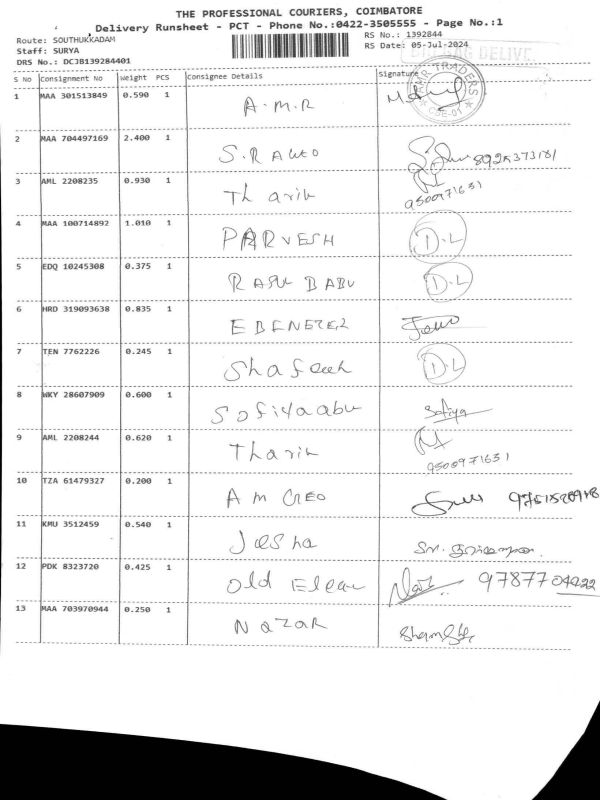 THE PROFESSIONAL COURIERS, COIMBATORE
Delivery Runsheet - PCT - Phone No.:0422-3505555 - Page No.:1
Route: SOUTHUKKADAM RS No.: 1392844
Staff: SURYA RS Date: 05-Jul-2024
DRS No.: DCJB139284401 DELIVE
S No Consignment No Weight PCS Consignee Details Signature
1 MAA 301513849 0.590 1 A.M.R AMR TRADERS CBE-01
2 MAA 704497169 2.400 1 8925373181
3 AML 2208235 0.930 1 Tharik 9500971651
4 MAA 100714892 1.010 1 PARVESH D.L
5 EDQ 10245308 0.375 1 BABU D.L
6 HRD 319093638 0.835 1 EBENEZER
7 TEN 7762226 0.245 1 D.L
8 WKY 28607909 0.600 1 Sofiyaabu Sofiya
9 AML 2208244 0.620 1 Tharik 9500971651
10 TZA 61479327 0.200 1 AM CREO
11 KMU 3512459 0.540 1
12 PDK 8323720 0.425 1 Old 9787704922
13 MAA 703970944 0.250 1 NAZAR